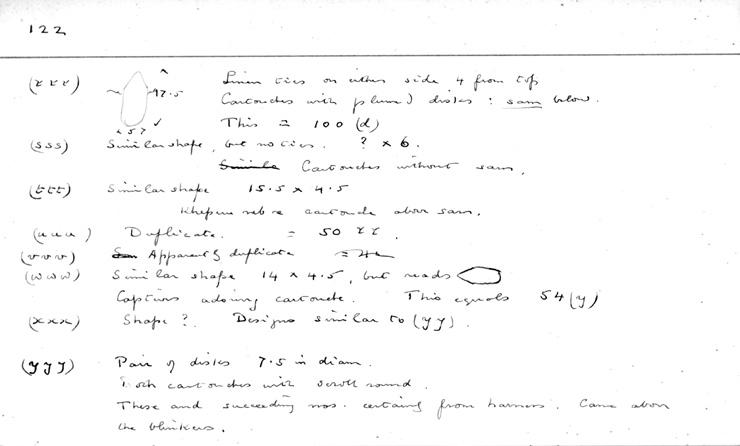 122
(rrr) 17.5 Linen ties on either side 4 from top
5.7 Cartouches with plumed disks : sam below.
This = 100 (d)
(sss) Similar shape, but no ties. ? x 6.
Cartouches without sam.
(ttt) Similar shape 15.5 x 4.5
Kheperu neb re cartouche above sam.
(uuu) Duplicate. = 50 rr.
(vvv) Apparently duplicate
(www) Similar shape 14 x 4.5, but reads
Captives adoring cartouche. This equals 54 (y)
(xxx) Shape ?. Designs similar to (yy).
(yyy) Pair of disks 7.5 in diam.
Both cartouches with scroll round.
These and succeeding nos. certainly from harness. Came above
the blinkers.